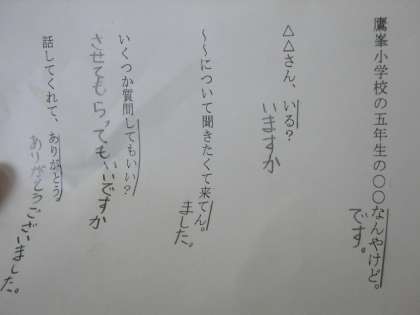 鷹峯小学校の五年生の〇〇なんやけど。
です。
△△さん、いる?
いますか
~~について聞きたくて来てん。
ました。
いくつか質問してもいい?
させてもらってもいいですか
話してくれて、ありがとう
ありがとうございました。